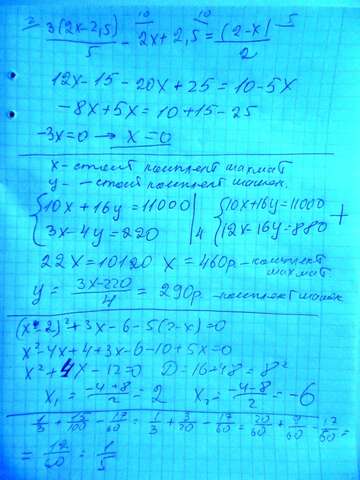 2 3(2x-2,5)/5 - 2x + 2,5 = (2-x)/2
10 10 5
12x-15-20x+25=10-5x
-8x+5x=10+15-25
-3x=0 → x=0
x- стоит комплект шахмат
y- -стоит комплект шашек.
{10x+16y=11000 | {10x+16y=11000 +
3x-4y=220 | 4 12x-16y=880
22x=10120 x=460р-комплект шахмат.
y = 3x-220/4 = 290р -комплект шашек
(x-2)²+3x-6-5(2-x)=0
x²-4x+4+3x-6-10+5x=0
x²+4x-12=0 D=16+48=8²
x₁ = -4+8/2 = 2 x₂ = -4-8/2 = -6
1/3 + 15/100 - 17/60 = 1/3 + 3/20 - 17/60 = 20/60 + 9/60 - 17/60 =
= 12/60 = 1/5